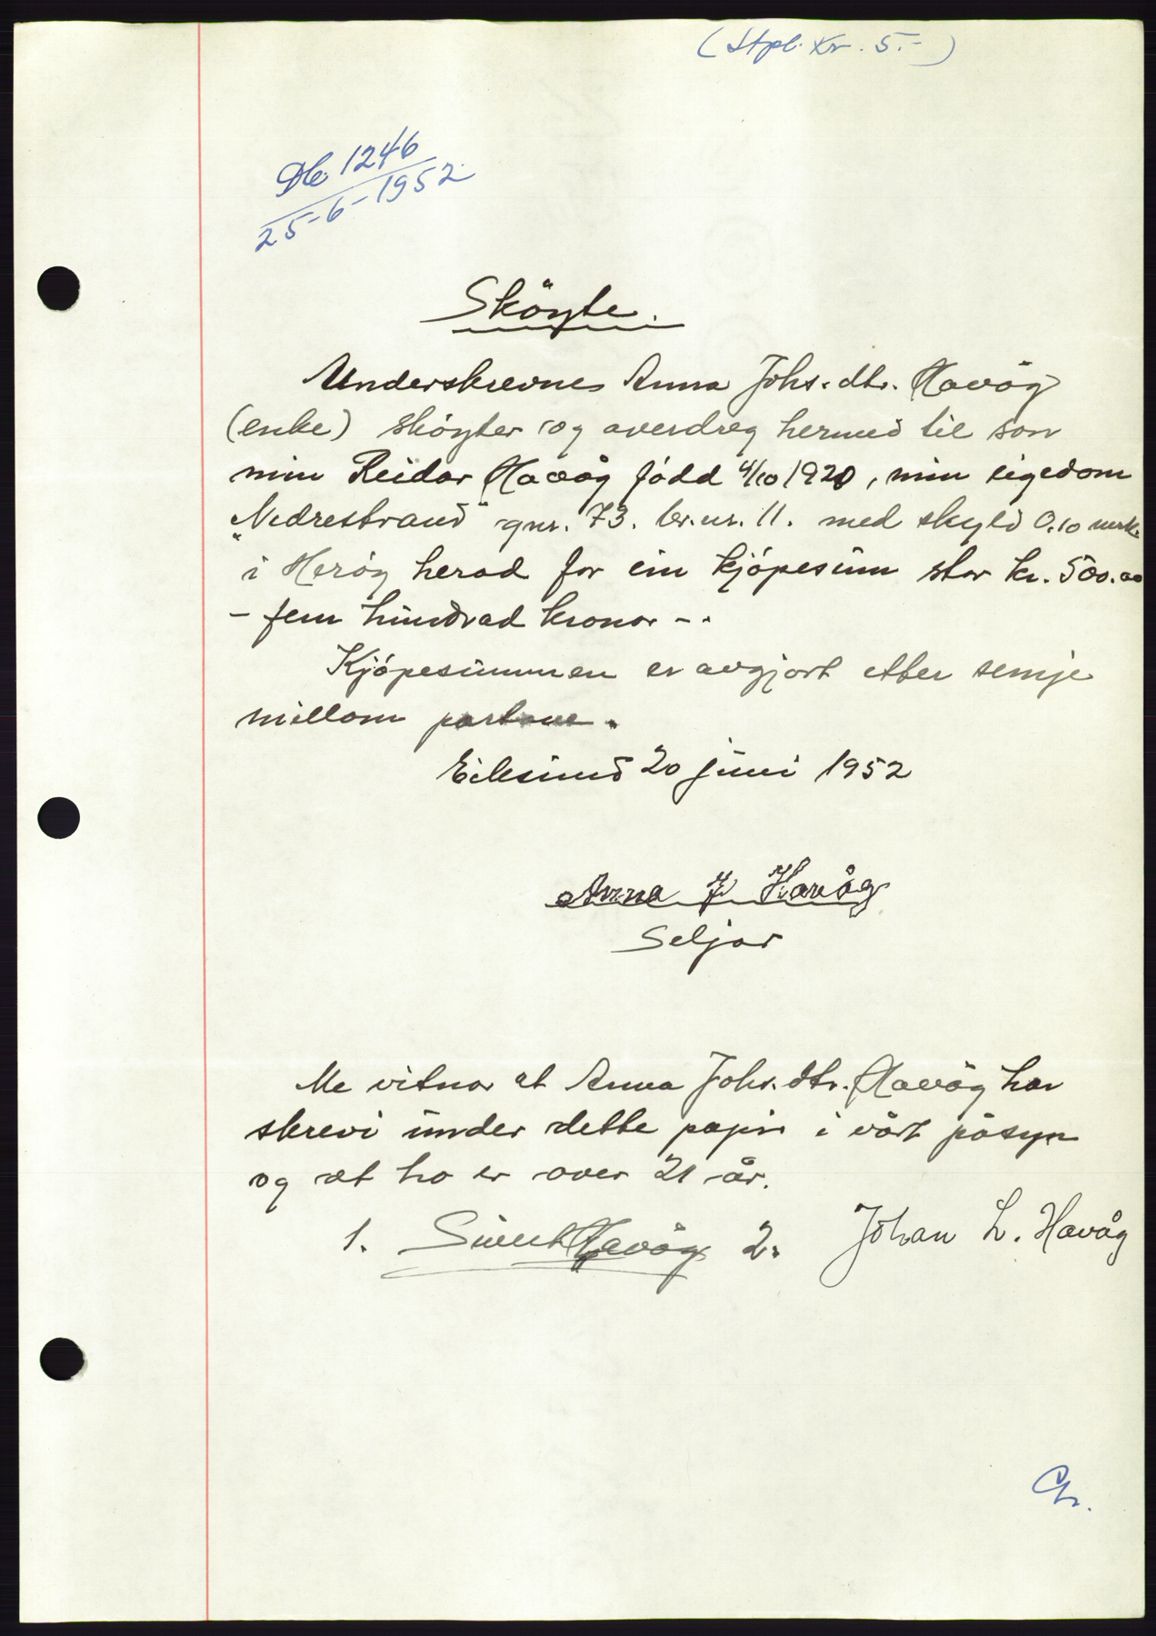 (Stpl. Kr. 5.-)
Db 1246
25-6-1952
Sköyte.
Underskrevnes Anna Johs. dtr. Havåg
(enke) sköyter og averdreg hermed til son
min Reidar Havåg född 4/10 1920, min eigedom
„Nedrestrand" gnr. 73. br.nr. 11. med skyld 0.10 mrk.
i Heröy herad for ein kjöpesum stor kr. 500.00
- fem hundrad kronor -.
Kjöpesummen er avgjort etter semje
millom partane.
Eiksund 20 juni 1952
Anna J Havåg
Seljar
Me vitnar at Anna Johs. dtr. Havåg har
skrevi under dette papir i vårt påsyn
og at ho er over 21 år.
1. Sivert Havåg 2. Johan L. Havåg